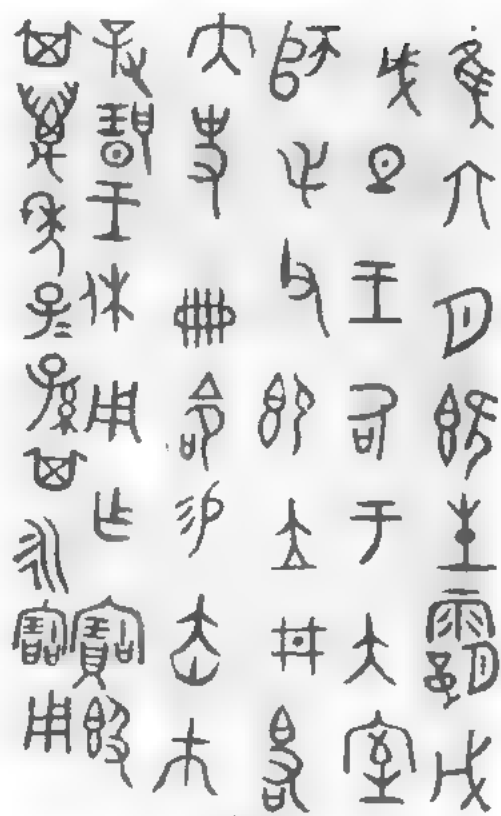 隹六月既生霸戊
戌旦王各于大室
師毛父即立井白右
內史冊命易赤巿
對揚王休用乍寶簋
其萬年子＝孫其永寶用